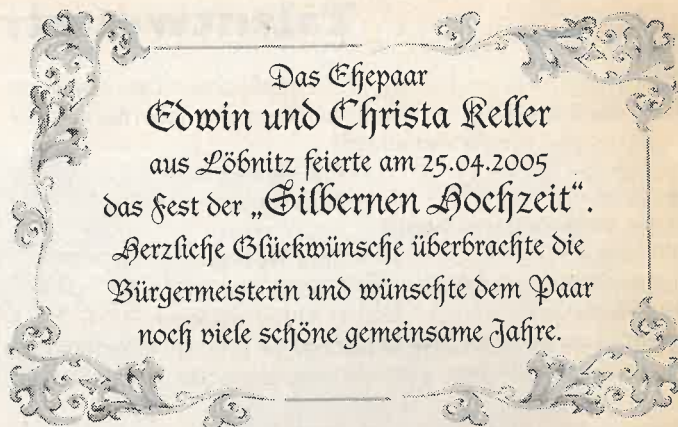 Das Ehepaar
Edwin und Christa Keller
aus Löbnitz feierte am 25.04.2005
das Fest der „Silbernen Hochzeit“.
Herzliche Glückwünsche überbrachte die
Bürgermeisterin und wünschte dem Paar
noch viele schöne gemeinsame Jahre.